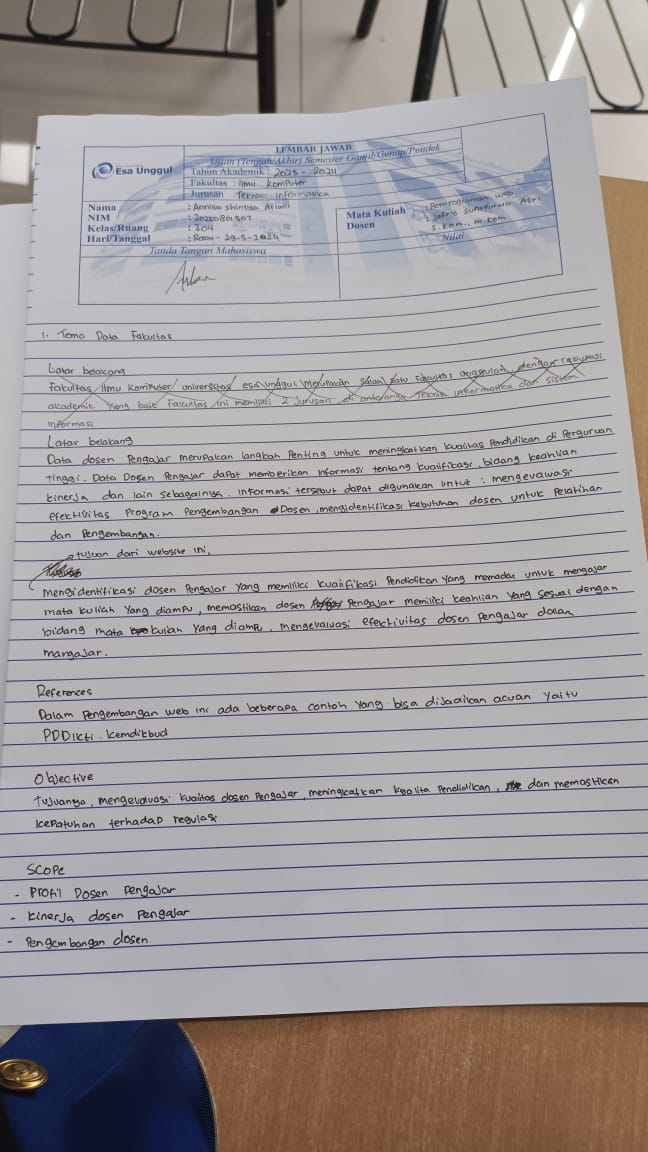 LEMBAR JAWAB
Ujian (Tengah/Akhir) Semester Ganjil/Genap/Pendek
Esa Unggul
Tahun Akademik : 2023 - 2024
Fakultas : Ilmu Komputer
Jurusan : Teknik Informatika
Nama : Annisa Shintia Ariani
NIM : 20220801507
Kelas/Ruang : 304
Hari/Tanggal : Rabu - 29-5-2024
Mata Kuliah : Pemrograman Web
Dosen : Jefry Sunupurwa Asri
S.Kom., M.Kom
Tanda Tangan Mahasiswa
Nilai
1. Tema Data Fakultas
Latar belakang
Fakultas Ilmu Komputer universitas esa unggul merupakan salah satu Fakultas unggulan, dengan reputasi
akademik yang baik Fakultas ini memiliki 2 Jurusan di antaranya Teknik Informatika dan sistem
informasi
Latar belakang
Data dosen Pengajar merupakan langkah Penting untuk meningkatkan kualitas Pendidikan di Perguruan
tinggi. Data Dosen Pengajar dapat memberikan informasi tentang kualifikasi, bidang keahlian
kinerja dan lain sebagainya. Informasi tersebut dapat digunakan untuk : mengevawasi
efektivitas Program Pengembangan Dosen, mengidentifikasi kebutuhan dosen untuk Pelatihan
dan Pengembangan.
tujuan dari website ini,
mengidentifikasi dosen Pengajar yang memiliki kuaifikasi Pendidikan yang memadai untuk mengajar
mata kuliah yang diampu, memastikan dosen Pengajar memiliki keahlian yang sesuai dengan
bidang mata kuliah yang diampu, mengevaluasi efektivitas dosen pengajar dalam
mangajar.
References
Dalam Pengembangan web ini ada beberapa contoh yang bisa dijadikan acuan yaitu
PDDikti.kemdikbud
Objective
Tujuanya, mengevaluasi kualitas dosen Pengajar, meningkatkan kualita Pendidikan, dan memastikan
kepatuhan terhadap regulasi
Scope
- Profil Dosen Pengajar
- Kinerja dosen Pengajar
- Pengembangan dosen